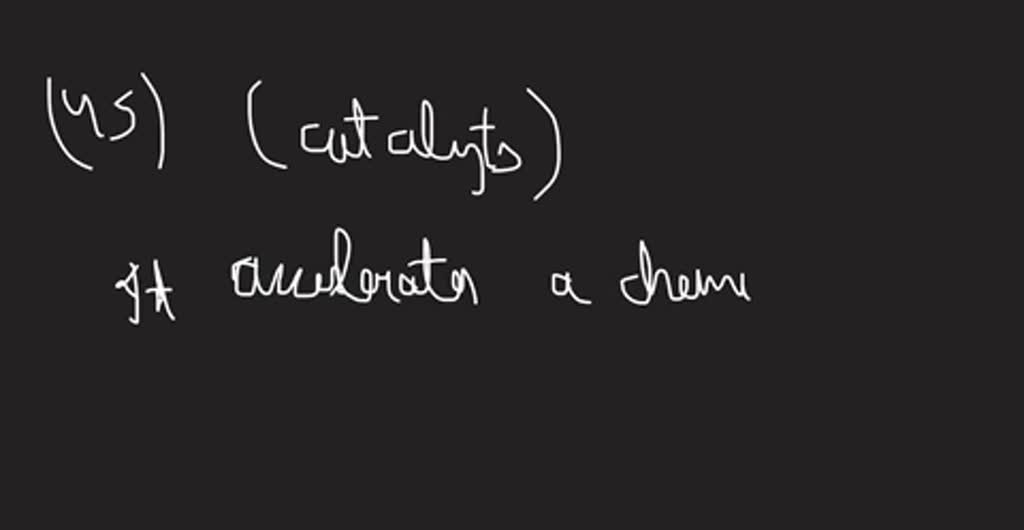 (45) (catalyts)
It accelerates a chemi